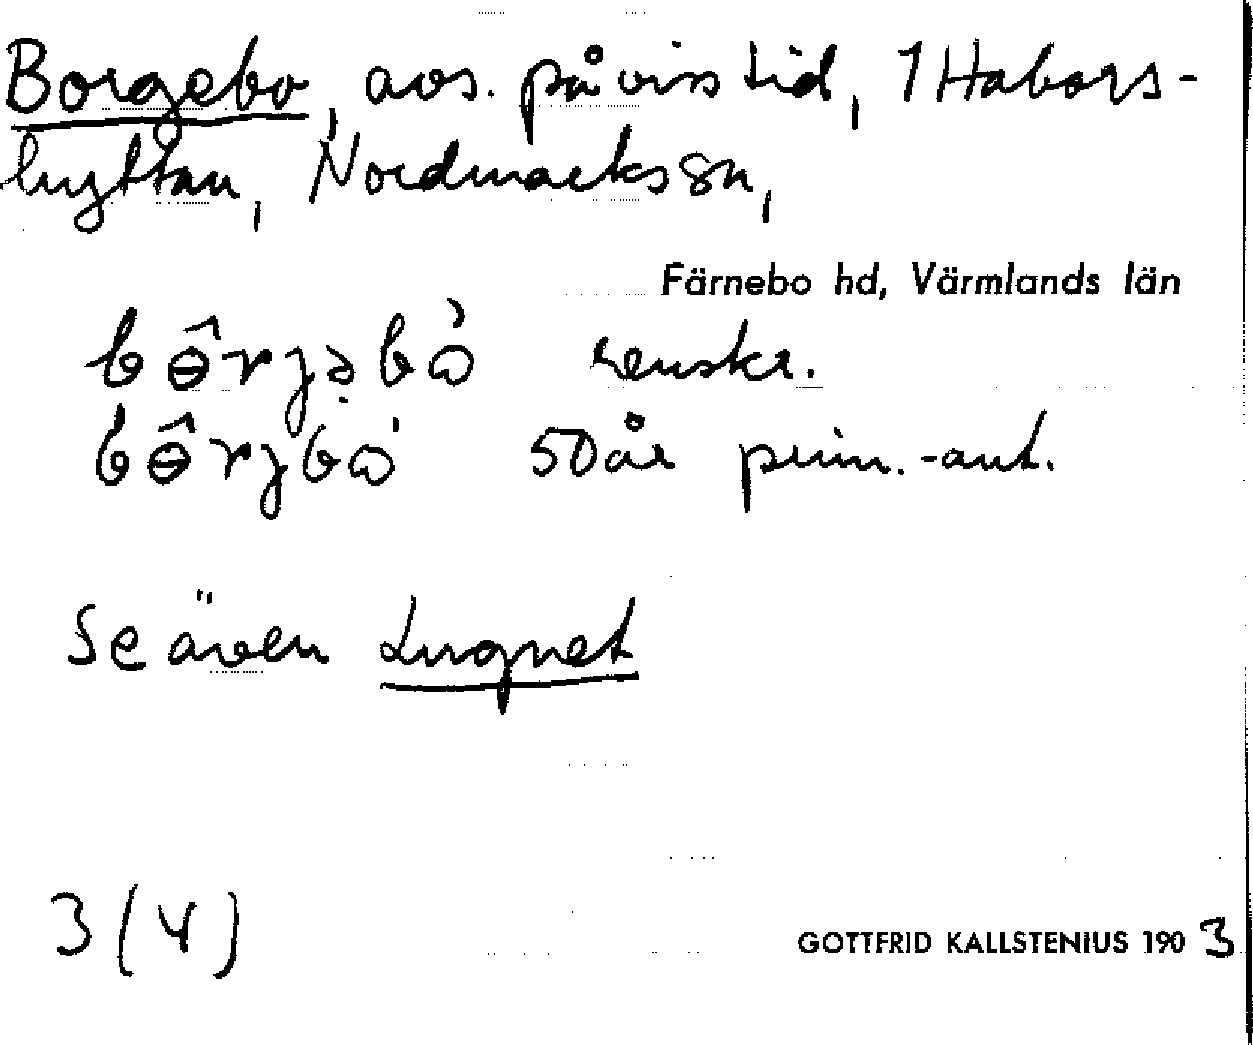 Borgebo, avs. på viss tid, 1 Habors-
hyttan, Nordmarks sn,
Färnebo hd, Värmlands län
bɵ̂rjə̣bὼ renskr.
bɵ̂rjbω 50 år prim.-ant.
Se även Lugnet
3 (4)
GOTTFRID KALLSTENIUS 1903